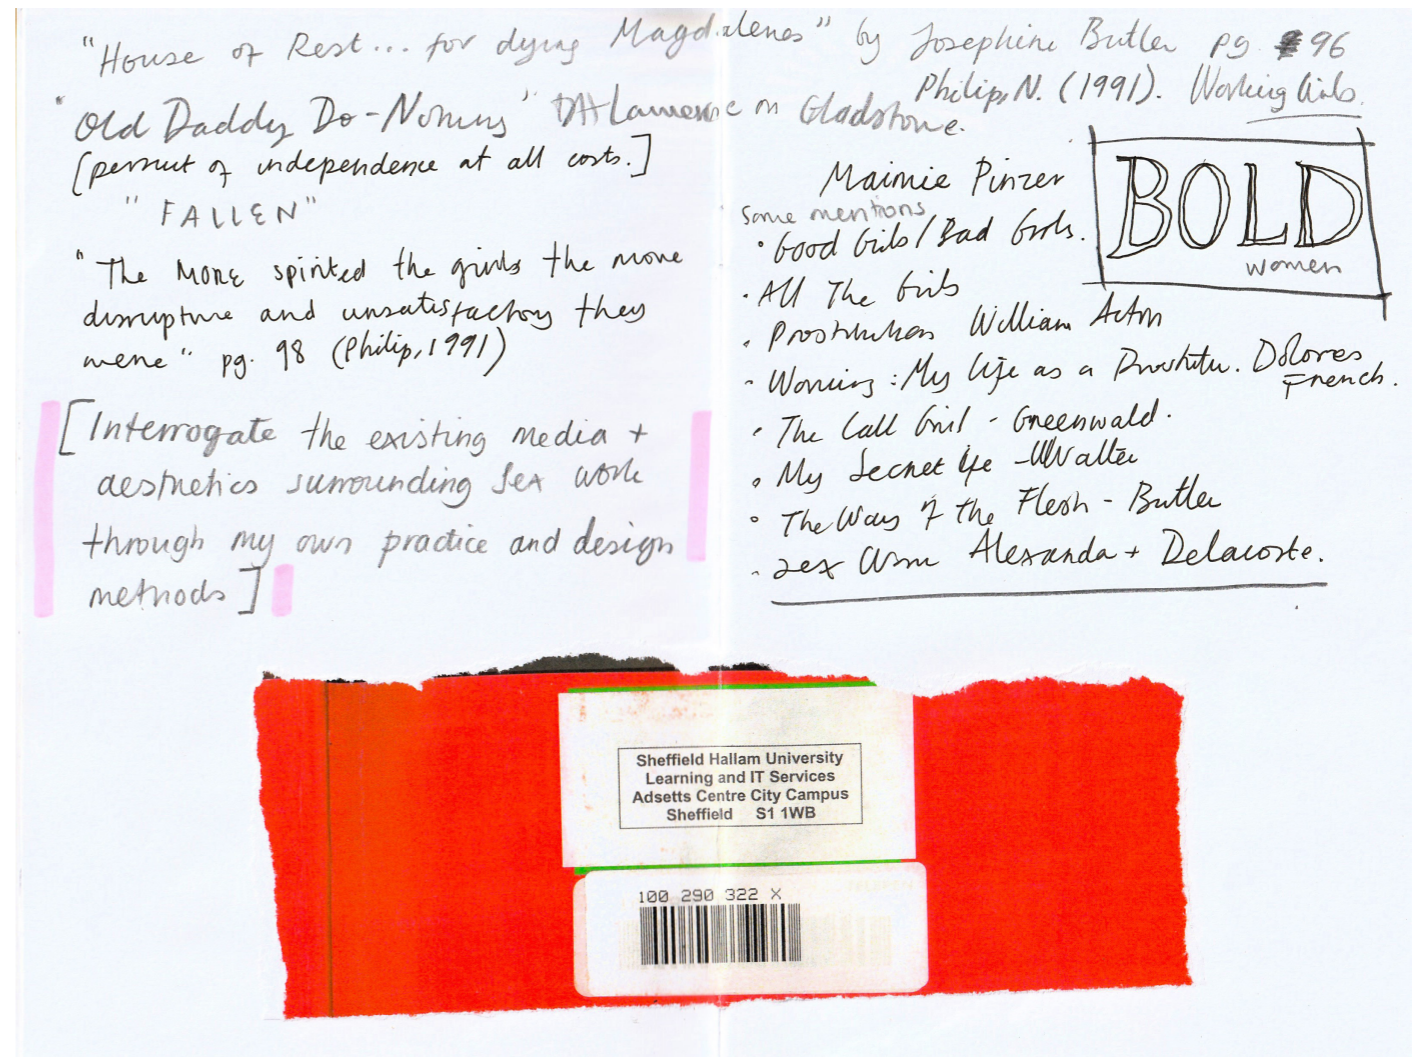 "House of Rest... for dying Magdalenes" by Josephine Butler pg. 96
Philip, N. (1991). Working Girls.
"Old Daddy Do-Nothing" DH Lawrence on Gladstone.
[persuit of independence at all costs.]
"FALLEN"
"The MORE spirited the girls the more
disruptive and unsatisfactory they
were" pg. 98 (Philip, 1991)
[Interrogate the existing media +
aesthetics surrounding sex work
through my own practice and design
methods]
Maimie Pinzer
BOLD
women
Some mentions
• Good Girls / Bad Girls.
• All The Girls
• Prostitution William Acton
• Working: My life as a Prostitute. Dolores
French.
• The Call Girl - Greenwald.
• My Secret life - Walter
• The Way of the Flesh - Butler
• Sex Work Alexanda + Delacoste.
Sheffield Hallam University
Learning and IT Services
Adsetts Centre City Campus
Sheffield S1 1WB
100 290 322 X